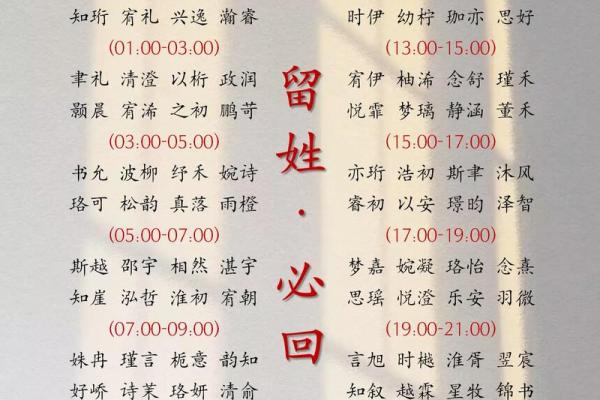 知珩 宥礼 兴逸 瀚睿
(01:00-03:00)
聿礼 清澄 以桁 政润
颢晨 宥浠 之初 鹏苛
(03:00-05:00)
书允 波柳 纾禾 婉诗
珞可 松韵 真落 雨橙
(05:00-07:00)
斯越 邵宇 相然 湛宇
知崖 泓哲 淮初 宥朝
(07:00-09:00)
姝冉 瑾言 栀意 韵知
好峤 诗茉 珞妍 清俞
留姓·必回
时伊 幼柠 珈亦 思好
(13:00-15:00)
宥伊 柚浠 念舒 瑾禾
悦霏 梦璃 静涵 董禾
(15:00-17:00)
亦珩 浩初 斯聿 沐风
睿初 以安 璟昀 泽智
(17:00-19:00)
梦嘉 婉凝 珞怡 念熹
思瑶 悦澄 乐安 羽微
(19:00-21:00)
言旭 时樾 淮胥 翌宸
知叙 越霖 星牧 锦书